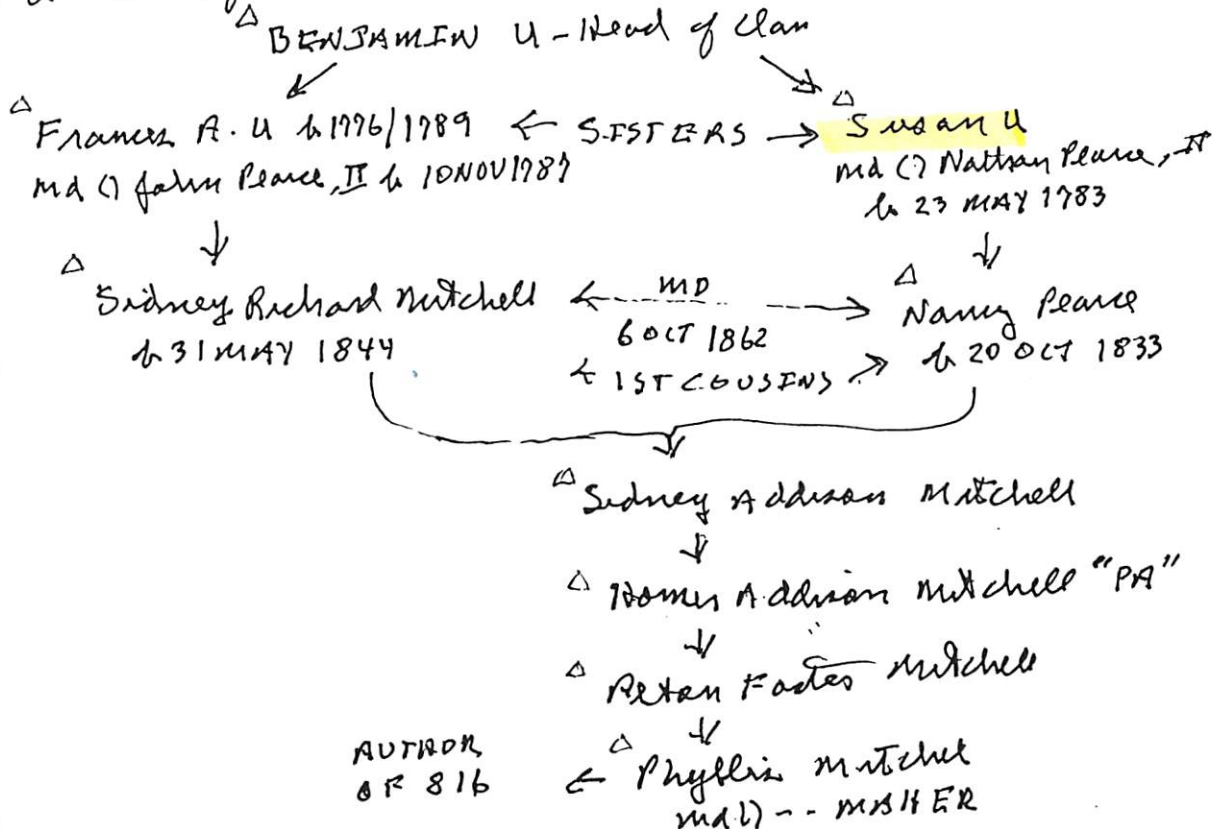 BENJAMIN U - Head of Clan
Frances A. U b 1776/1789 ← SISTERS → Susan U
md () John Pearce, II b 10 NOV 1787
md () Nathan Pearce, II
b 23 MAY 1783
Sidney Richard Mitchell ← MD → Nancy Pearce
b 31 MAY 1844
6 OCT 1862
b 20 OCT 1833
← 1ST COUSINS →
Sidney Addison Mitchell
Homer Addison Mitchell "PA"
Foster Mitchell
AUTHOR
OF 816
← Phyllis Mitchel
md () -- MAHER